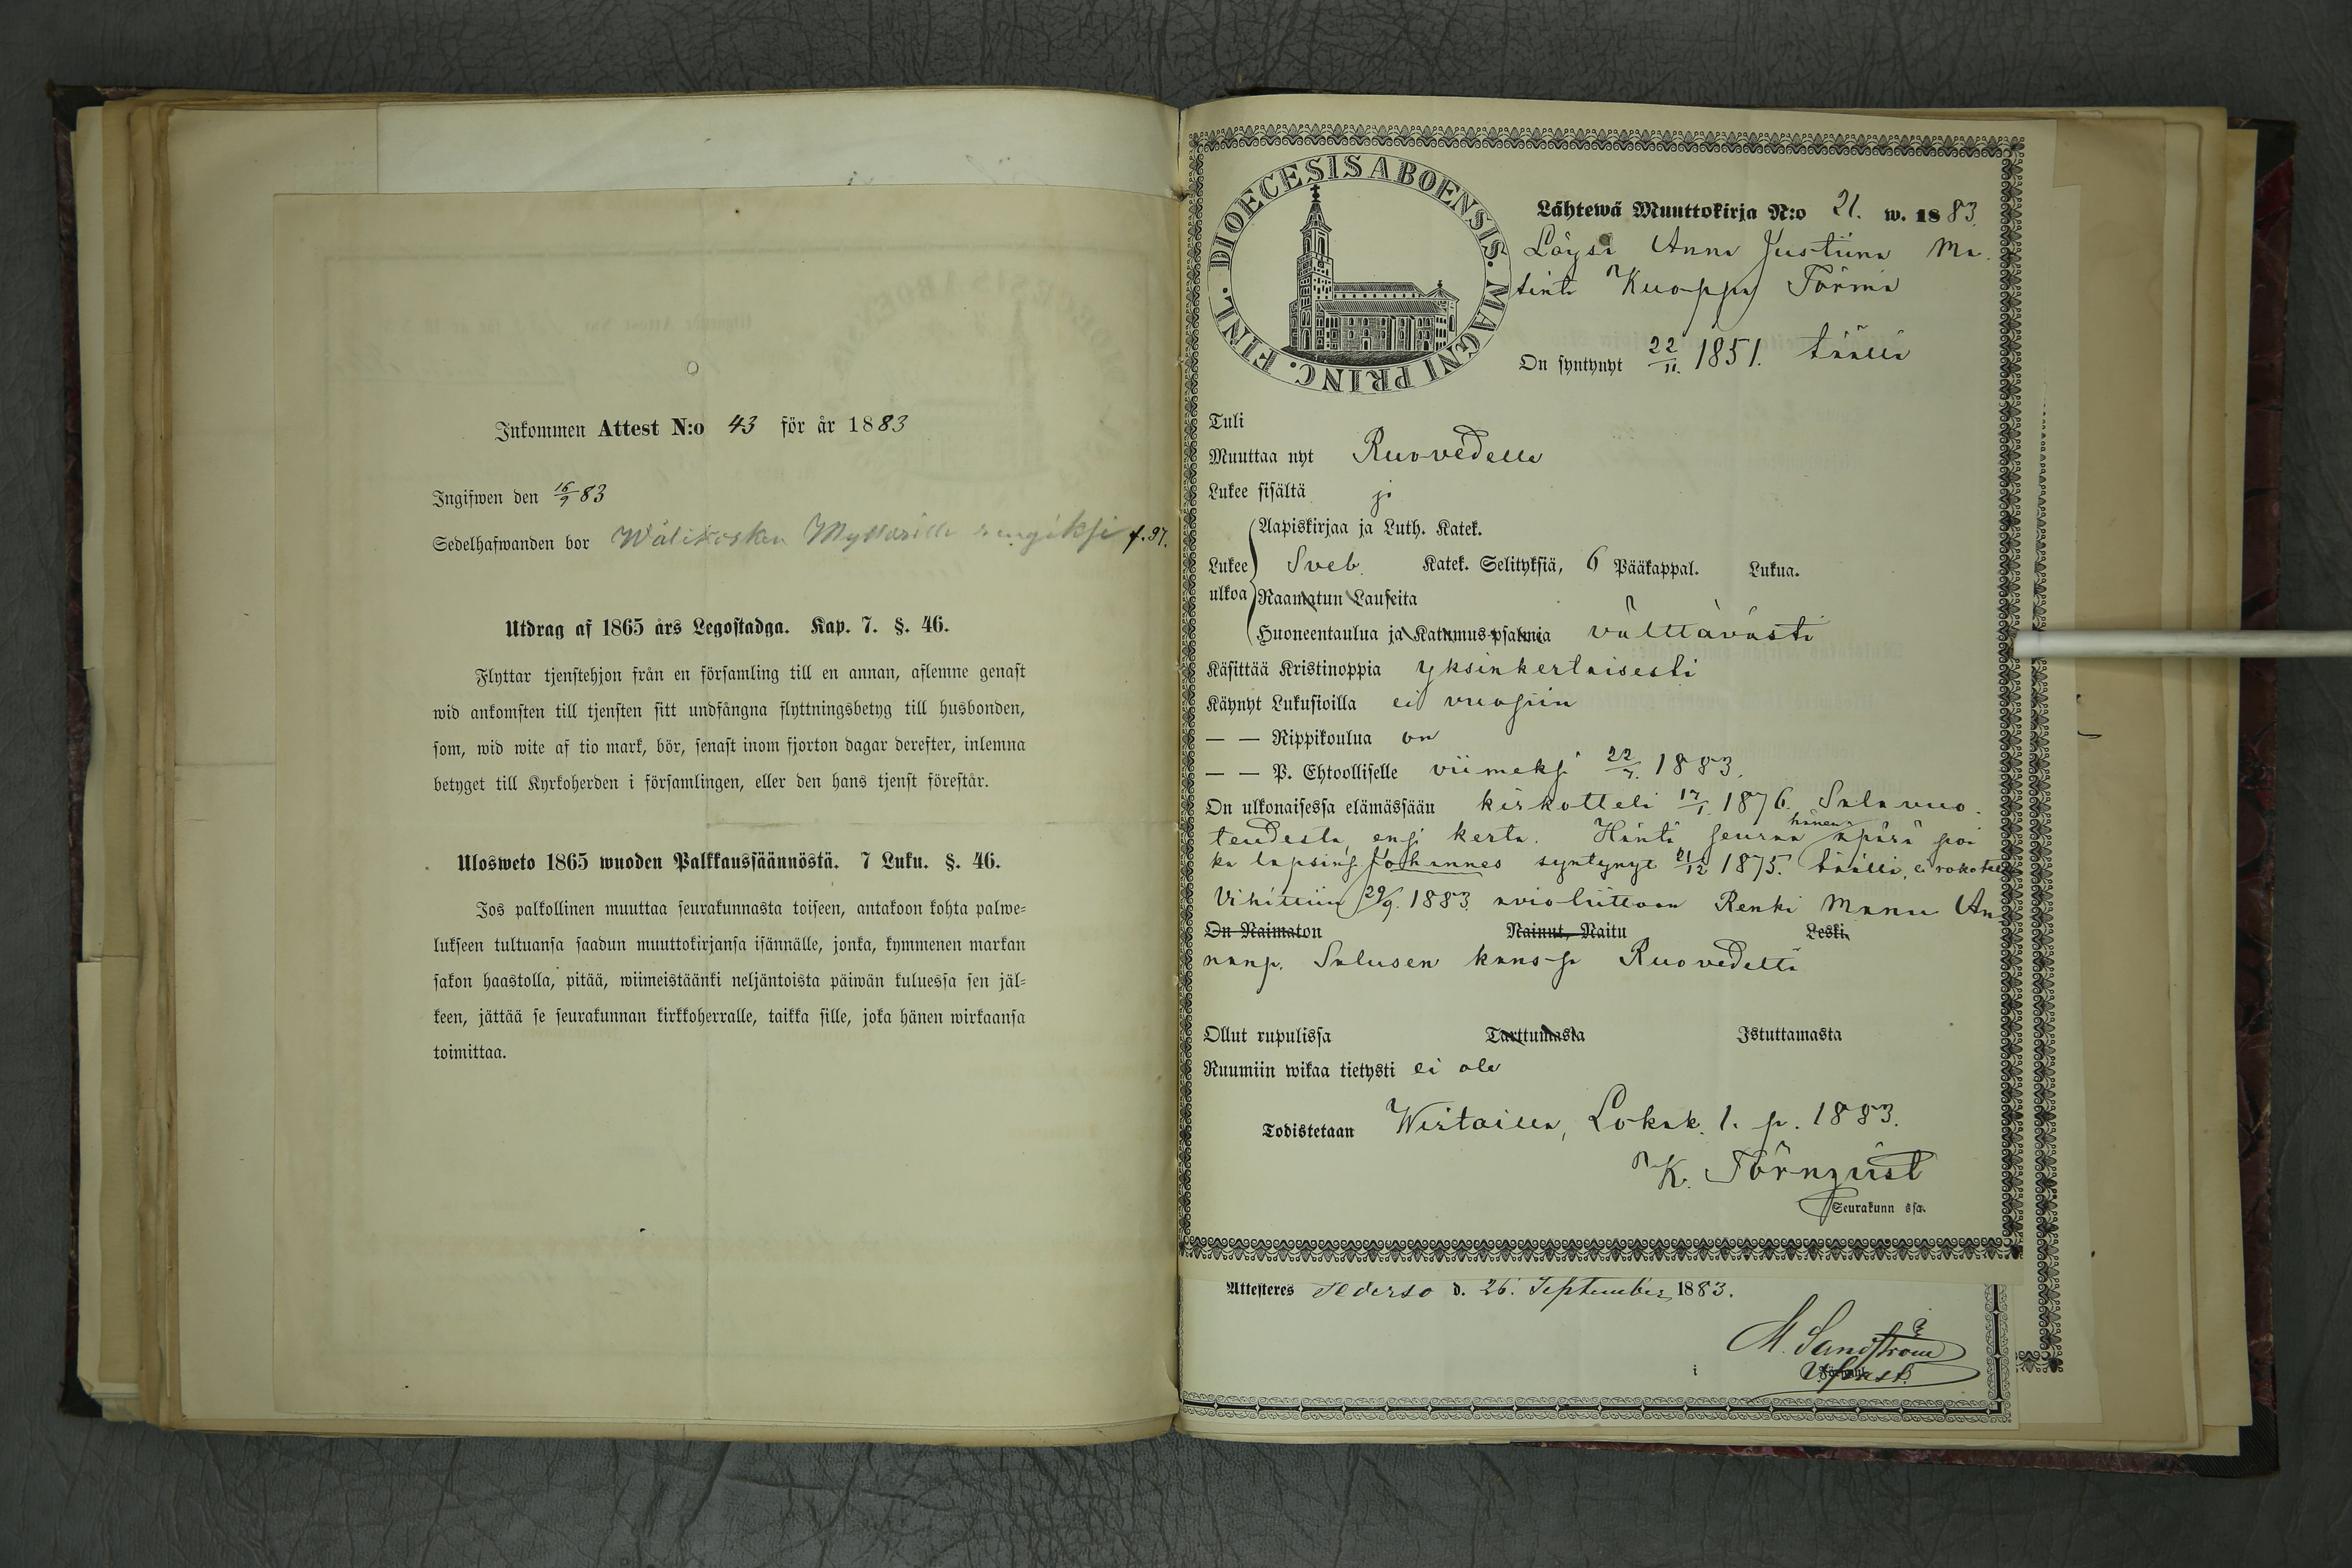 Inkommen Attest N:o 43 för år 1883
Ingifwen den 16/9 83
Sedelhafwanden bor Wälikosken Myllärille rengiksi f. 97.
Utdrag af 1865 års Legostadga. Kap. 7. §. 46.
Flyttar tjenstehjon från en församling till en annan, aflemne genast
wid ankomsten till tjensten sitt undfångna flyttningsbetyg till husbonden,
som, wid wite af tio mark, bör, senast inom fjorton dagar derefter, inlemna
betyget till Kyrkoherden i församlingen, eller den hans tjenst förestår.
Ulosweto 1865 wuoden Palkkaussäännöstä. 7 Luku. §. 46.
Jos palkollinen muuttaa seurakunnasta toiseen, antakoon kohta palwe=
lukseen tultuansa saadun muuttokirjansa isännälle, jonka, kymmenen markan
sakon haastolla, pitää, wiimeistäänki neljäntoista päiwän kuluessa sen jäl=
keen, jättää se seurakunnan kirkkoherralle, taikka sille, joka hänen wirkaansa
toimittaa.
DIOECESIS ABOENSIS. MAGNI PRINC. FINL.
Lähtewä Muuttokirja N:o 21. w. 1883
Löysä Anna Justiina Ma
tint. Kuoppa Törmä
On syntynyt 22/11. 1851. täällä
Tuli
Muuttaa nyt Ruovedelle
Lukee sisältä
Aapiskirjaa ja Luth. Katek.
Lukee ulkoa Sveb. Katek. Selityksiä, 6 Pääkappal. Lukua.
Raamatun Lauseita
Huoneentaulua ja Katumus-psalmia välttävästi
Käsittää Kristinoppia yksinkertaisesti
Käynyt Lukusioilla ei vuosiin
— — Rippikoulua on
— — P. Ehtoolliselle viimeksi 22/7. 1883.
On ulkonaisessa elämässään kirkotteli 17/1. 1876. Salavuo
teudesta, ensi kerta. Häntä seuraa hänen äpärä poi
ka lapsensa Johannes syntynyt 21/12 1875. täällä, ei rokotettu
Vihittiin 29/9. 1883. avioliittoon Renki Manu An
On Naimaton Nainut, Naitu Leski.
nanp. Salusen kanssa Ruovedeltä
Ollut rupulissa Tarttumasta Istuttamasta
Ruumiin wikaa tietysti ei ole
Todistetaan Wirtailla, Lokak. 1. p. 1883.
K. Törnqvist
Seurakunn ssa.
Attesteres Pederso d. 26. September 1883.
M. Sandström
i